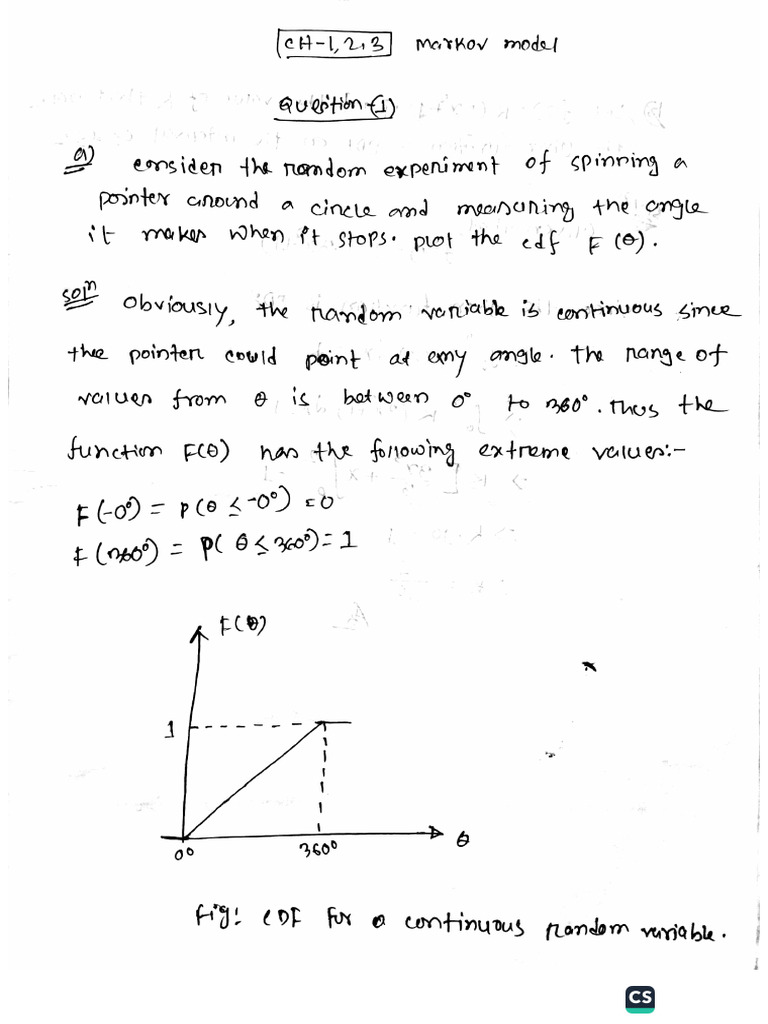 CH-1,2,3 Markov model
Question-(1)
a) consider the random experiment of spinning a
pointer around a circle and measuring the angle
it makes when it stops. plot the cdf F(θ).
solⁿ Obviously, the random variable is continuous since
thee pointer could point at any angle. the range of
values from θ is between 0° to 360°. Thus the
function F(θ) has the following extreme values:-
F(-0°) = P(θ ≤ -0°) = 0
F(360°) = P(θ ≤ 360°) = 1
F(θ)
1
0° 360° θ
Fig: CDF For a continuous random variable.
CS